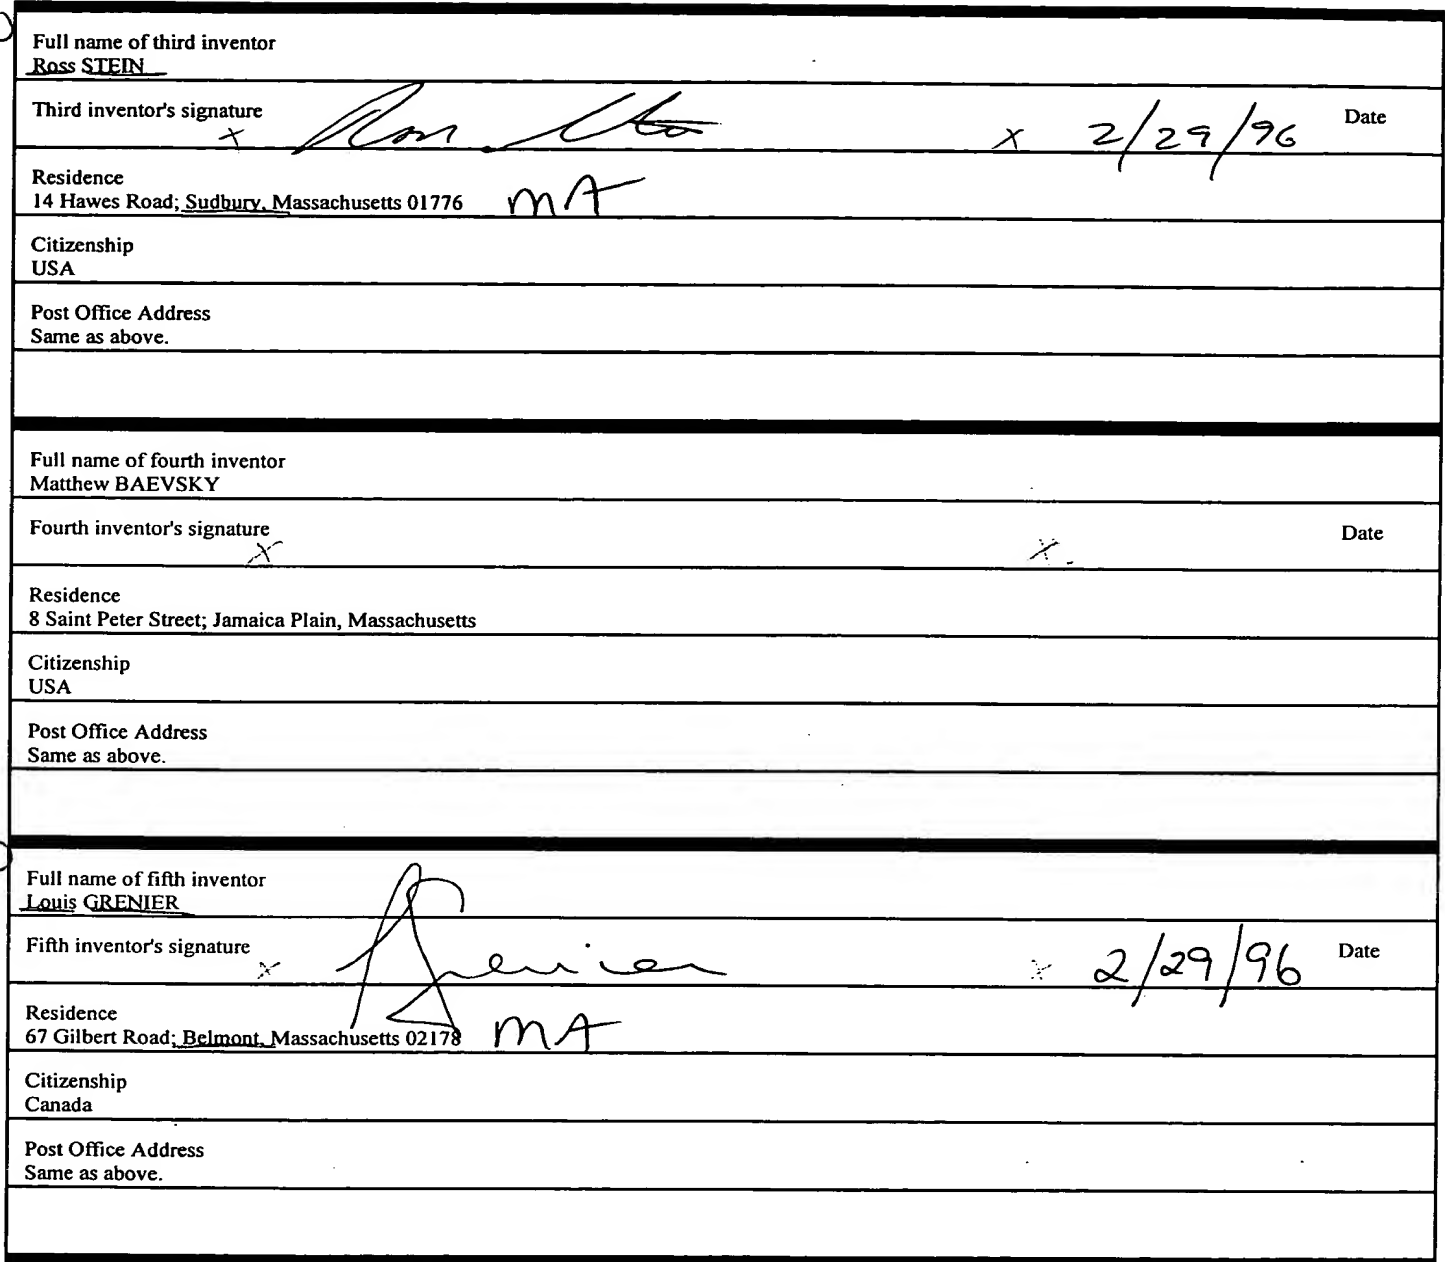 Full name of third inventor
Ross STEIN
Third inventor's signature x Ross Stein x 2/29/96 Date
Residence
14 Hawes Road; Sudbury, Massachusetts 01776 MA
Citizenship
USA
Post Office Address
Same as above.
Full name of fourth inventor
Matthew BAEVSKY
Fourth inventor's signature x x Date
Residence
8 Saint Peter Street; Jamaica Plain, Massachusetts
Citizenship
USA
Post Office Address
Same as above.
Full name of fifth inventor
Louis GRENIER
Fifth inventor's signature x Grenier x 2/29/96 Date
Residence
67 Gilbert Road; Belmont, Massachusetts 02178 MA
Citizenship
Canada
Post Office Address
Same as above.